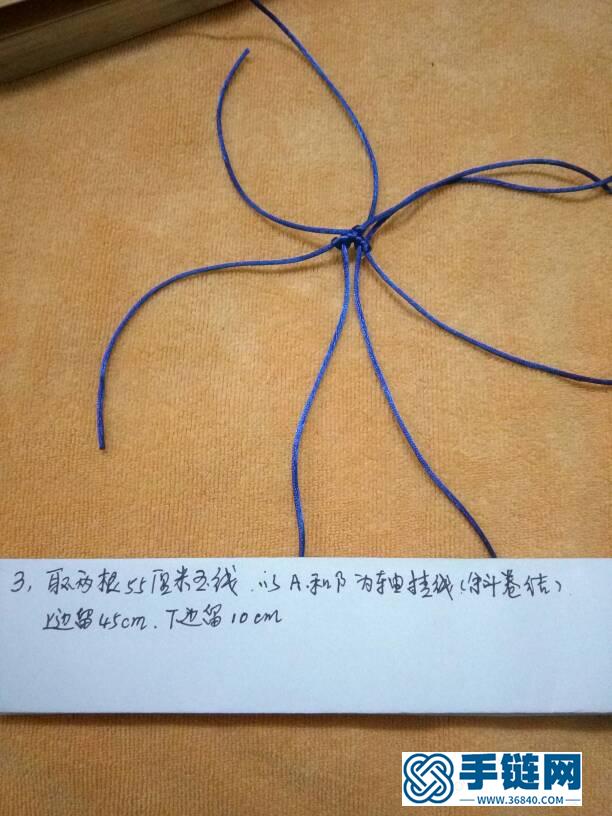 3, 取两根55厘米玉线.以A.和B为轴挂线(斜卷结)
上边留45cm.下边留10cm
手链网
WWW.36840.COM